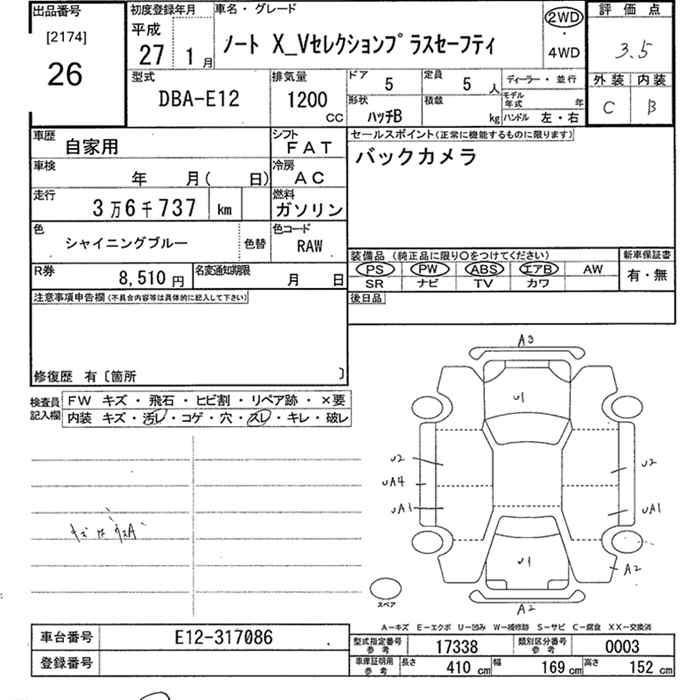 出品番号
[2174]
26
初度登録年月
平成
27 1月
車名・グレード
ノート X_Vセレクションプラスセーフティ
2WD
・
4WD
評価点
3.5
外装 内装
C B
型式
DBA-E12
排気量
1200
CC
ドア
5
定員
5人
ディーラー・並行
形状
ハッチB
積載
kg
モデル年式 年
ハンドル 左・右
車歴
自家用
シフト
FAT
車検
年 月( 日)
冷房
AC
走行
3万6千737 km
燃料
ガソリン
色
シャイニングブルー
色替
色コード
RAW
R券
8,510円
名変通知期限
月 日
セールスポイント(正常に機能するものに限ります)
バックカメラ
装備品 (純正品に限り○をつけてください)
PS PW ABS エアB AW
SR ナビ TV カワ
新車保証書
有・無
後日品
注意事項申告欄(不具合内容等は具体的に記入して下さい)
修復歴 有〔箇所 〕
検査員記入欄
FW キズ・飛石・ヒビ割・リペア跡・×要
内装 キズ・汚レ・コゲ・穴・スレ・キレ・破レ
A3
U1
U2
UA4
UA1
U2
UA1
A2
U1
A2
スペア
A-キズ E-エクボ U-凹み W-補修跡 S-サビ C-腐食 XX-交換済
車台番号
E12-317086
登録番号
型式指定番号
参考
17338
類別区分番号
参考
0003
車庫証明用
参考
長さ
410 cm
幅
169 cm
高さ
152 cm